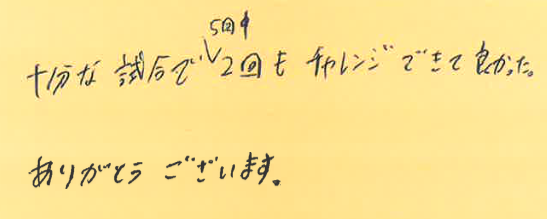 5回中
十分な 試合で 2回も チャレンジできて良かった。
ありがとうございます。